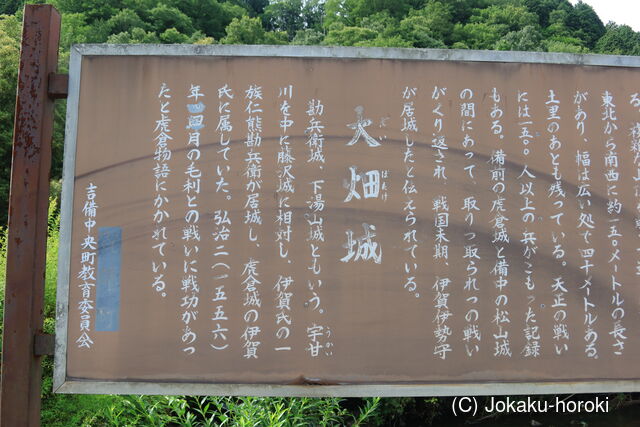 東北から南西に約一五〇メートルの長さ
があり、幅は広い処で四十メートルある。
土里のあとも残っている。天正の戦い
には一五〇人以上の兵がこもった記録
もある。備前の虎倉城と備中の松山城
の間にあって、取りつ取られつの戦い
がくり返され、戦国末期、伊賀伊勢守
が居城したと伝えられている。
大畑城
どい はたけ
勘兵衛城、下湯山城ともいう。宇甘
うかい
川を中に藤沢城に相対し、伊賀氏の一
族仁熊勘兵衛が居城し、虎倉城の伊賀
氏に属していた。弘治二(一五五六)
年四月の毛利との戦いに戦功があっ
たと虎倉物語にかかれている。
吉備中央町教育委員会
(C) Jokaku-horoki